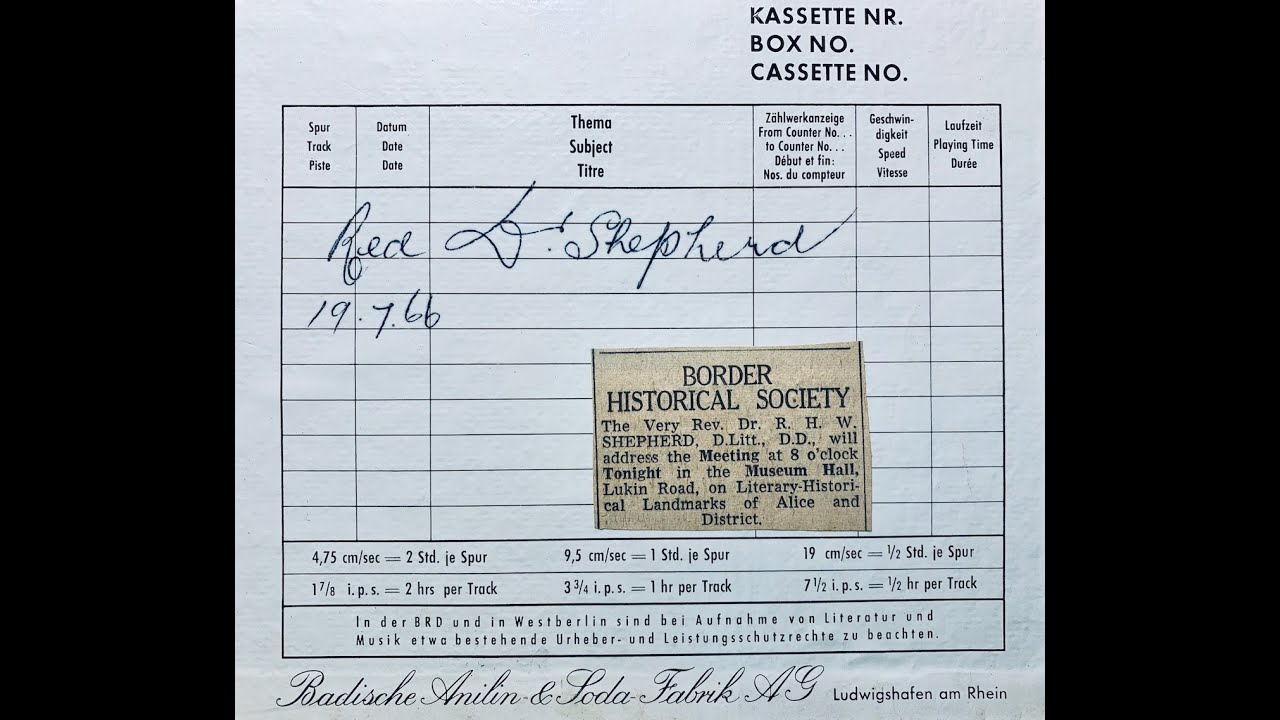 KASSETTE NR.
BOX NO.
CASSETTE NO.
Spur
Track
Piste
Datum
Date
Date
Thema
Subject
Titre
Zählwerkanzeige
From Counter No. . .
to Counter No. . .
Début et fin:
Nos. du compteur
Geschwin-
digkeit
Speed
Vitesse
Laufzeit
Playing Time
Durée
Dr. Shepherd
19.7.66
BORDER
HISTORICAL SOCIETY
The Very Rev. Dr. R. H. W.
SHEPHERD, D.Litt., D.D., will
address the Meeting at 8 o'clock
Tonight in the Museum Hall,
Lukin Road, on Literary-Histori-
cal Landmarks of Alice and
District.
4,75 cm/sec = 2 Std. je Spur 9,5 cm/sec = 1 Std. je Spur 19 cm/sec = 1/2 Std. je Spur
1 7/8 i.p.s. = 2 hrs per Track 3 3/4 i.p.s. = 1 hr per Track 7 1/2 i.p.s. = 1/2 hr per Track
In der BRD und in Westberlin sind bei Aufnahme von Literatur und
Musik etwa bestehende Urheber- und Leistungsschutzrechte zu beachten.
Badische Anilin- & Soda-Fabrik AG Ludwigshafen am Rhein